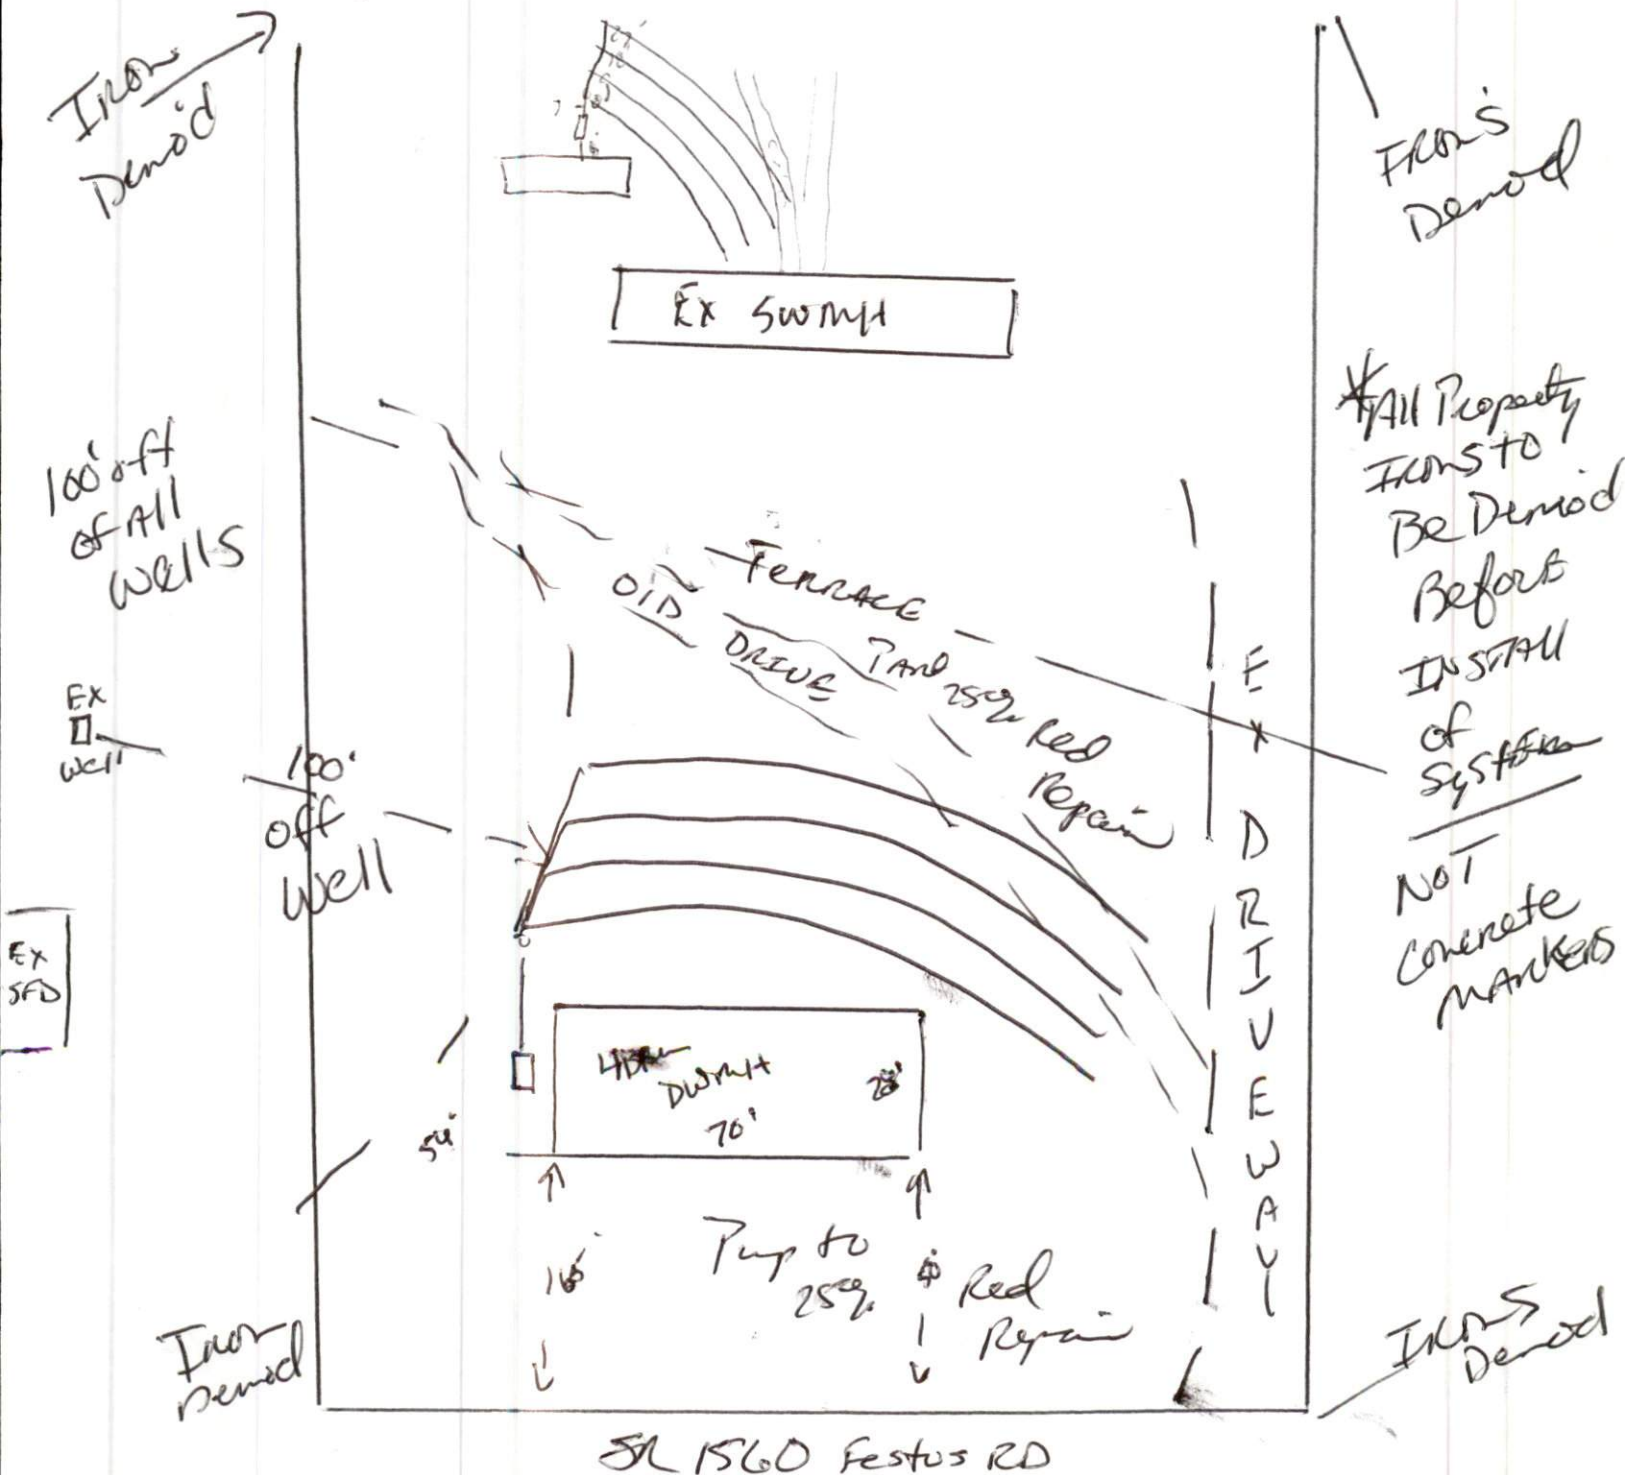 Iron
Demo'd
Iron's
Demod
Ex SWMH
100' off
of All
Wells
*All Property
Irons to
Be Demod
Before
INSTALL
of
System
NOT
Concrete
MARKERS
TERRACE
OlD
DRIVE
25%
Red
Repair
EX
Well
100'
off
Well
EX DRIVEWAY
EX
SFD
4BR
DWMH
70'
28'
54'
Pump to
25%
Red
Repair
Iron
Demod
Irons
Demod
SR 1560 Festus RD